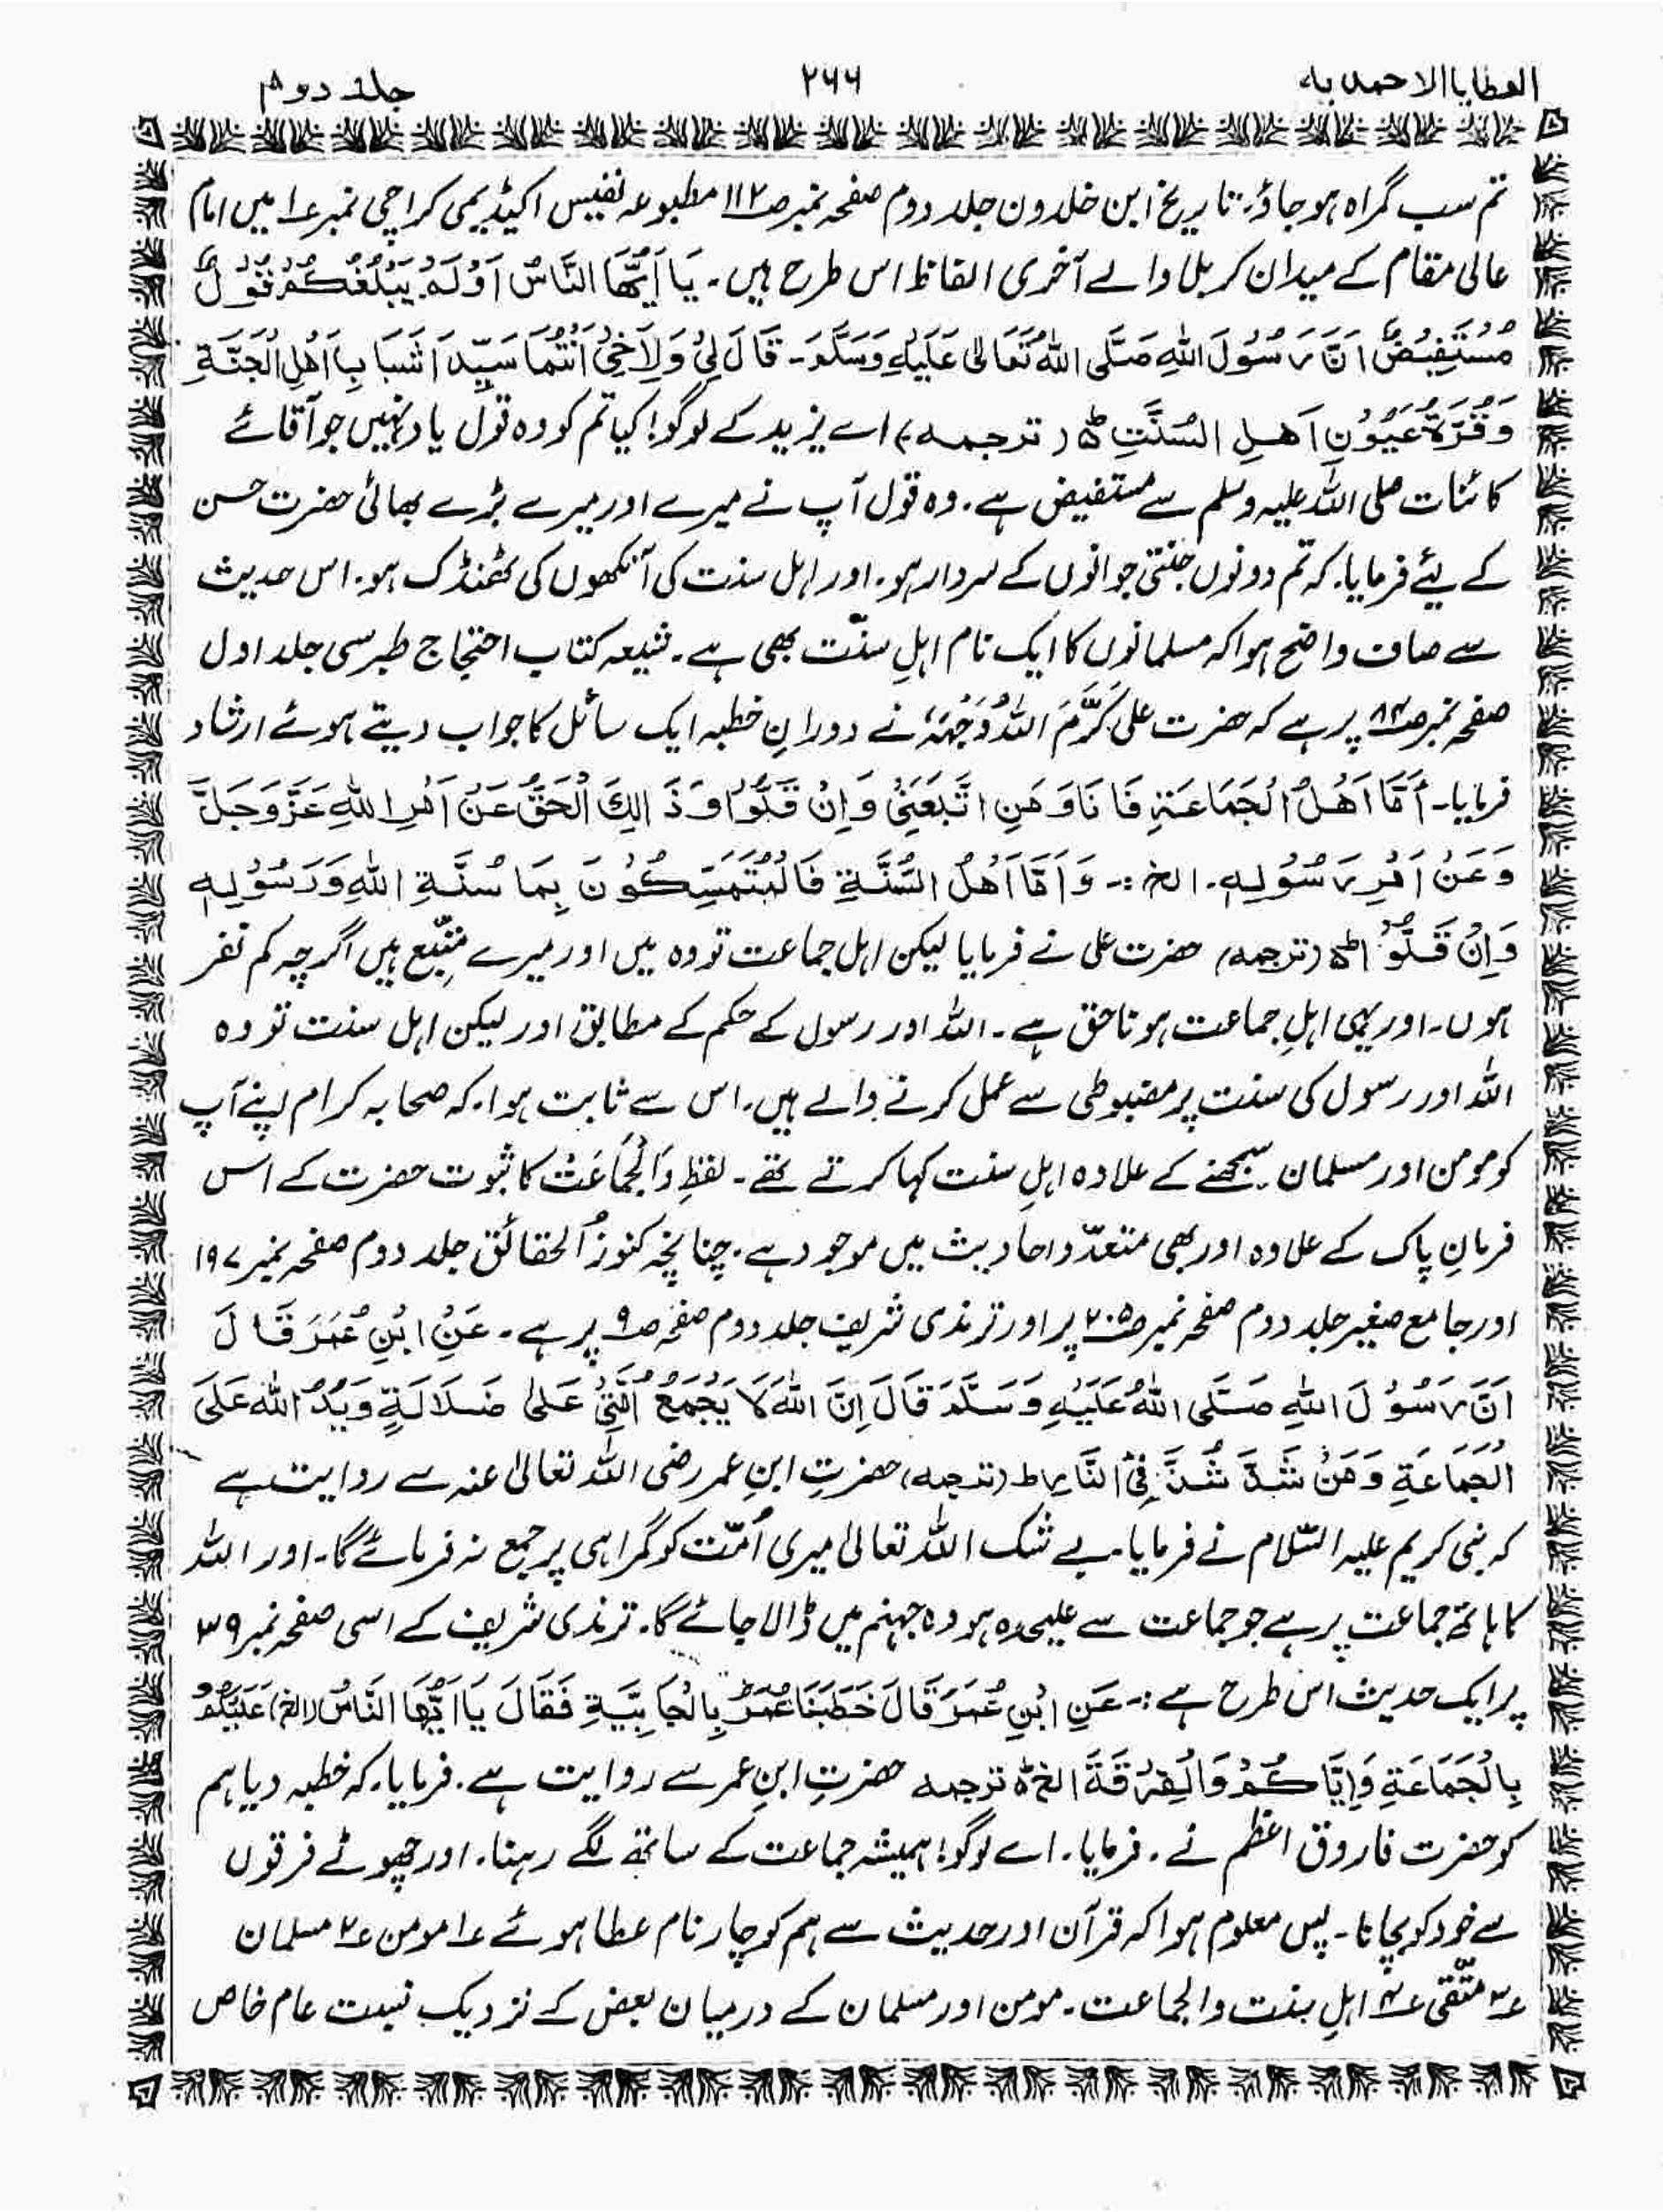 العطایا الاحمدیہ ۲۶۶ جلد دوم
تم سب گمراہ ہو جاؤ: تاریخ ابن خلدون جلد دوم صفحہ نمبر صـ۱۱۲ مطبوعہ نفیس اکیڈیمی کراچی نمبر ۱؎ میں امام
عالی مقام کے میدان کربلا والے آخری الفاظ اس طرح ہیں۔ یَا اَیُّھَا النَّاسُ اَوَلَمْ یَبْلُغْکُمْ قَوْلٌ
مُسْتَفِیْضٌ اَنَّ رَسُوْلَ اللہِ صَلَّی اللہُ تَعَالٰی عَلَیْہِ وَسَلَّمَ۔ قَالَ لِیْ وَلِاَخِیْ اَنْتُمَا سَیِّدَا شَبَابِ اَھْلِ الْجَنَّۃِ
وَقُرَّۃُ عُیُوْنِ اَھْلِ السُّنَّتِ ط ( ترجمہ) اے یزید کے لوگو! کیا تم کو وہ قول یاد نہیں جو آقائے
کائنات صلی اللہ علیہ وسلم سے مستفیض ہے۔ وہ قول آپ نے میرے اور میرے بڑے بھائی حضرت حسن
کے لیئے فرمایا۔ کہ تم دونوں جنتی جوانوں کے سردار ہو۔ اور اہل سنت کی آنکھوں کی ٹھنڈک ہو۔ اس حدیث
سے صاف واضح ہوا کہ مسلمانوں کا ایک نام اہلِ سنّت بھی ہے۔ شیعہ کتاب احتجاج طبرسی جلد اول
صفحہ نمبر صـ۸۴ پر ہے کہ حضرت علی کَرَّمَ اللہُ وَجْہَہٗ نے دورانِ خطبہ ایک سائل کا جواب دیتے ہوئے ارشاد
فرمایا۔ اَمَّا اَھْلُ الْجَمَاعَۃِ فَانَا وَمَنِ اتَّبَعَنِیْ وَاِنْ قَلُّوْا وَذَالِکَ الْحَقُّ عَنْ اَمْرِ اللہِ عَزَّوَجَلَّ
وَعَنْ اَمْرِ رَسُوْلِہٖ۔ الخ :۔ وَاَمَّا اَھْلُ السُّنَّۃِ فَالْمُتَمَسِّکُوْنَ بِمَا سُنَّۃِ اللہِ وَرَسُوْلِہٖ
وَاِنْ قَلُّوْا ط (ترجمہ) حضرت علی نے فرمایا لیکن اہل جماعت تو وہ میں اور میرے متّبع ہیں اگرچہ کم نفر
ہوں۔ اور یہی اہلِ جماعت ہونا حق ہے۔ اللہ اور رسول کے حکم کے مطابق اور لیکن اہل سنت تو وہ
اللہ اور رسول کی سنت پر مضبوطی سے عمل کرنے والے ہیں۔ اس سے ثابت ہوا۔ کہ صحابہ کرام اپنے آپ
کو مومن اور مسلمان سمجھنے کے علاوہ اہلِ سنت کہا کرتے تھے۔ لفظِ وَالْجَمَاعَتْ کا ثبوت حضرت کے اس
فرمانِ پاک کے علاوہ اور بھی متعدّد احادیث میں موجود ہے۔ چنانچہ کنوزُ الحقائق جلد دوم صفحہ نمبر ۱۹۷
اور جامع صغیر جلد دوم صفحہ نمبر صـ۲۰۵ پر اور ترمذی شریف جلد دوم صفحہ صـ۹ پر ہے۔ عَنْ ابْنِ عُمَرَ قَالَ
اَنَّ رَسُوْلَ اللہِ صَلَّی اللہُ عَلَیْہِ وَسَلَّمَ قَالَ اِنَّ اللہَ لَا یَجْمَعُ اُمَّتِیْ عَلٰی ضَلَالَۃٍ وَیَدُ اللہِ عَلَی
الْجَمَاعَۃِ وَمَنْ شَذَّ شُذَّ فِی النَّارِ ط (ترجمہ) حضرتِ ابنِ عمر رضی اللہ تعالیٰ عنہ سے روایت ہے
کہ نبی کریم علیہ السّلام نے فرمایا۔ بے شک اللہ تعالیٰ میری اُمّت کو گمراہی پر جمع نہ فرمائے گا۔ اور اللہ
کا ہاتھ جماعت پر ہے جو جماعت سے علیحدہ ہو وہ جہنم میں ڈالا جائے گا۔ ترمذی شریف کے اسی صفحہ نمبر ۳۹
پر ایک حدیث اس طرح ہے :۔ عَنِ ابْنِ عُمَرَ قَالَ خَطَبَنَا عُمَرُ بِالْجَابِیَّۃِ فَقَالَ یَا اَیُّھَا النَّاسُ (الخ) عَلَیْکُمْ
بِالْجَمَاعَۃِ وَاِیَّاکُمْ وَالْفِرْقَۃَ الخ ط ترجمہ حضرتِ ابنِ عمر سے روایت ہے۔ فرمایا۔ کہ خطبہ دیا ہم
کو حضرت فاروق اعظم نے۔ فرمایا۔ اے لوگو! ہمیشہ جماعت کے ساتھ لگے رہنا۔ اور چھوٹے فرقوں
سے خود کو بچانا۔ پس معلوم ہوا کہ قرآن اور حدیث سے ہم کو چار نام عطا ہوئے ۱؎ مومن ۲؎ مسلمان
۳؎ متّقی ۴؎ اہلِ سنت والجماعت۔ مومن اور مسلمان کے درمیان بعض کے نزدیک نسبت عام خاص